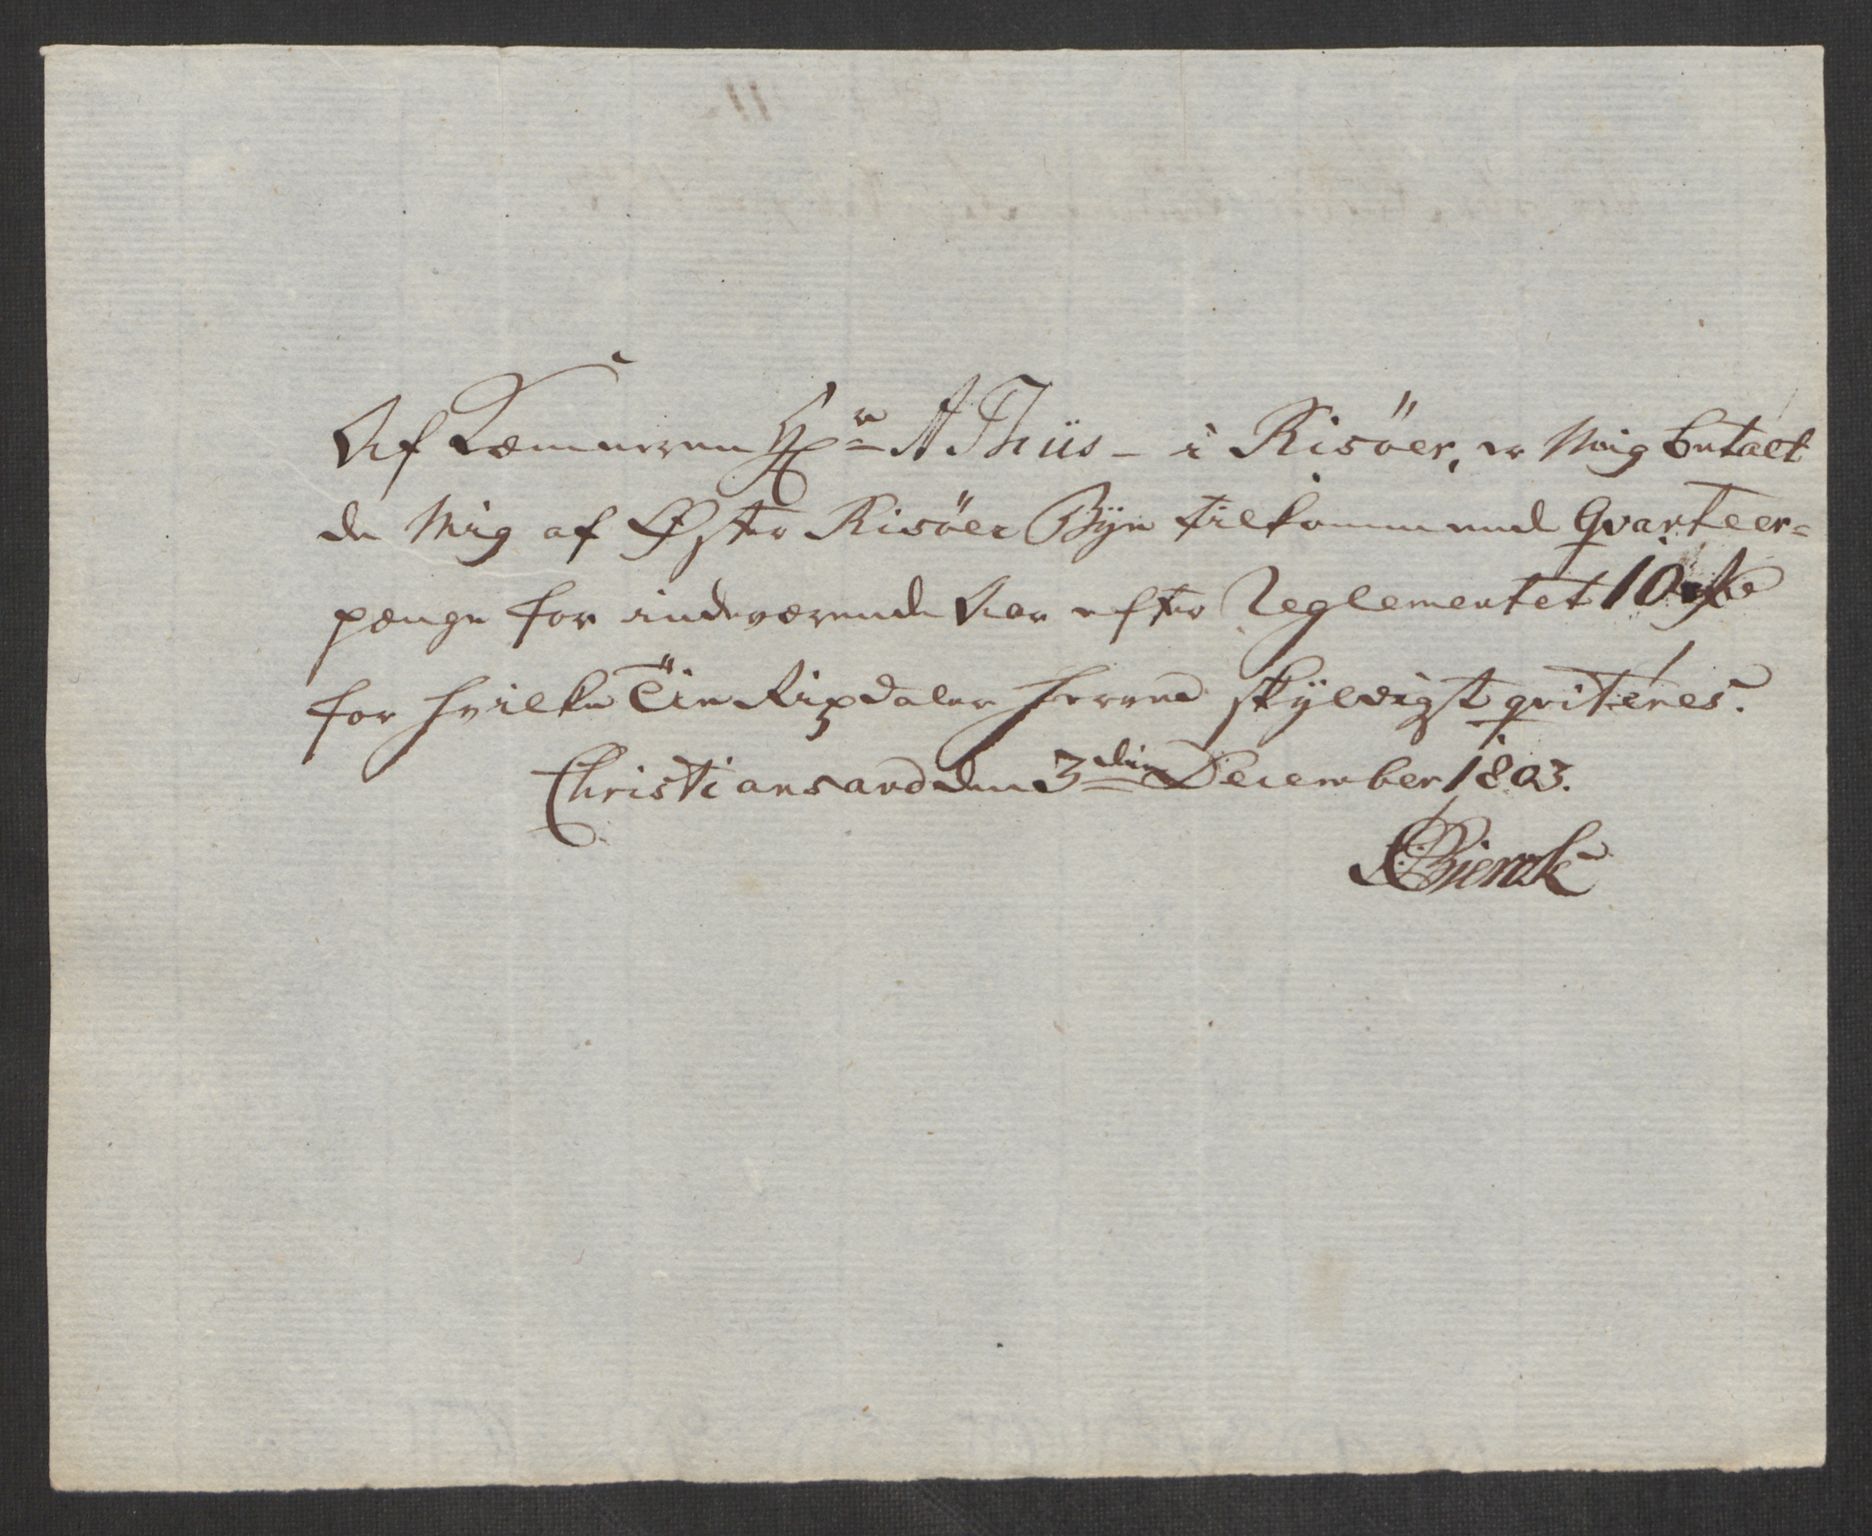 Af Kæmneren Hr A Thüs - i Risöer, er Mig betalt
de Mig af Øster Risöer Bÿe tilkommende Qvarteer=
penge for indeværende Aar efter Reglementet 10 rd
for hvilke Tie Rixdaler herved skÿldigst qviteres.
Christiansand den 3den December 1803.
Bierck